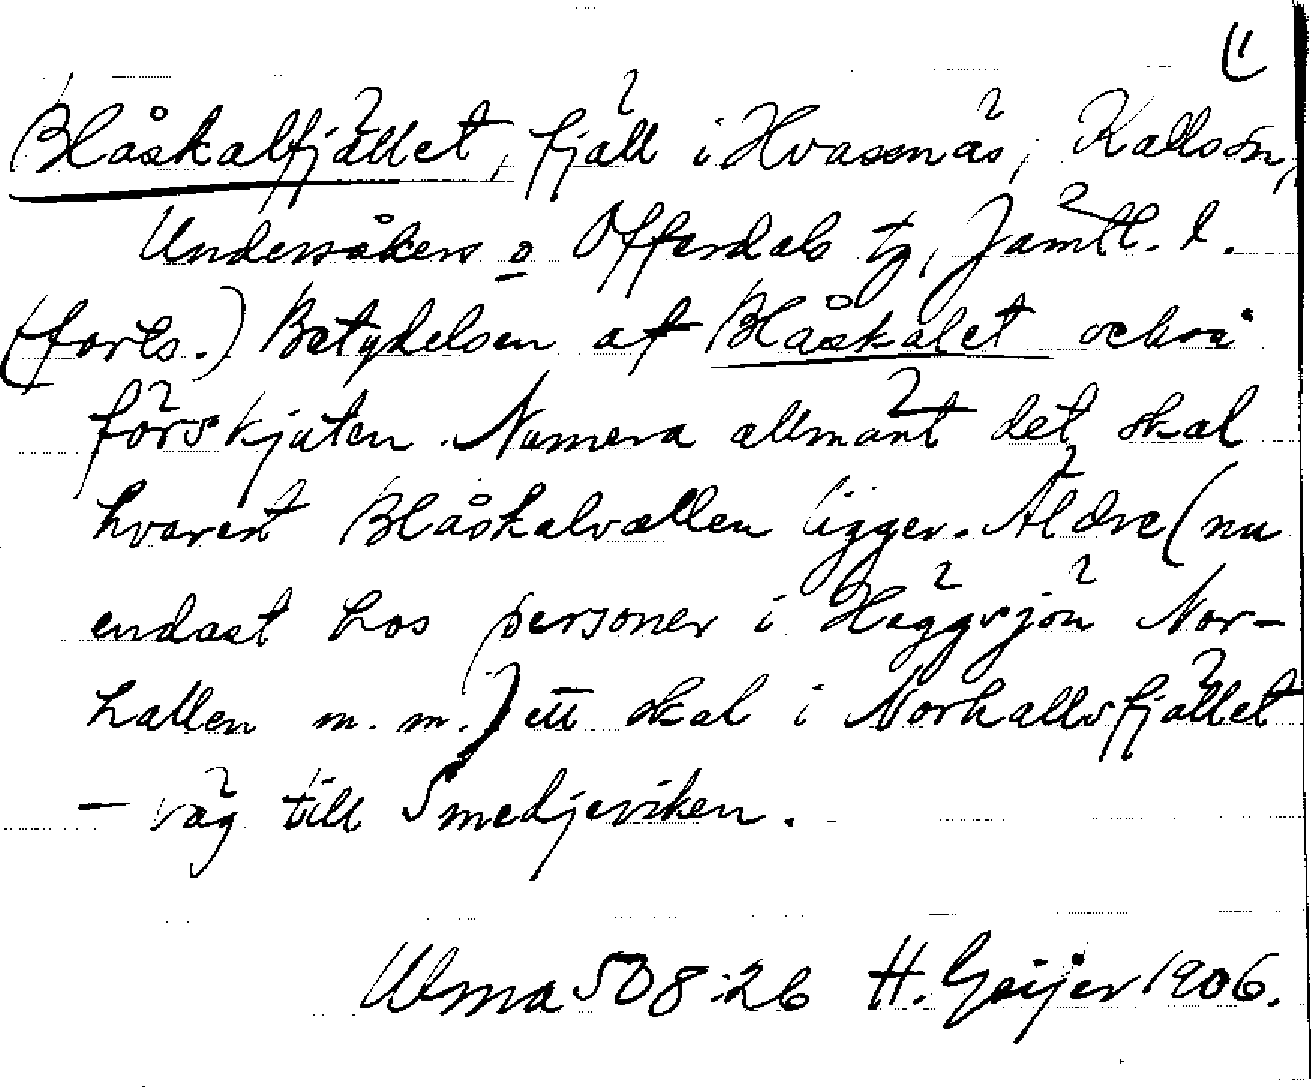 Blåskalfjället, fjäll i Hvassnäs, Kallsön,
Undersåkers o Offerdals tg, Jämtl. l.
(forts.) Betydelsen af Blåskalet också
förskjuten. Numera allmänt det skal
hvarest Blåskalvallen ligger. Äldre (nu
endast hos personer i Häggsjön Nor-
hallen m. m.) ett skal i Norhallsfjället
– väg till Smedjeviken.
Ulma 508:26 H. Geijer 1906.